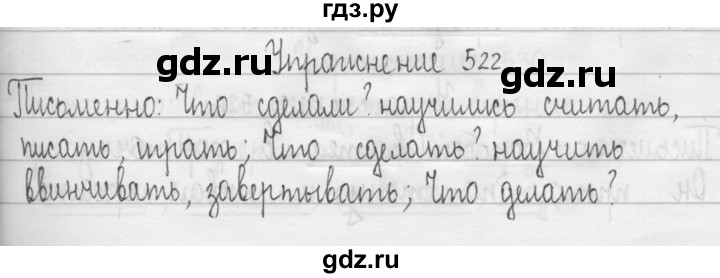 гдз.ру
Упражнение 522
Письменно: Что сделали? научились считать,
писать, играть; Что сделать? научить
ввинчивать, завертывать; Что делать?
gdz.ru gdz.ru
gdz.ru gdz.ru
gdz.ru gdz.ru